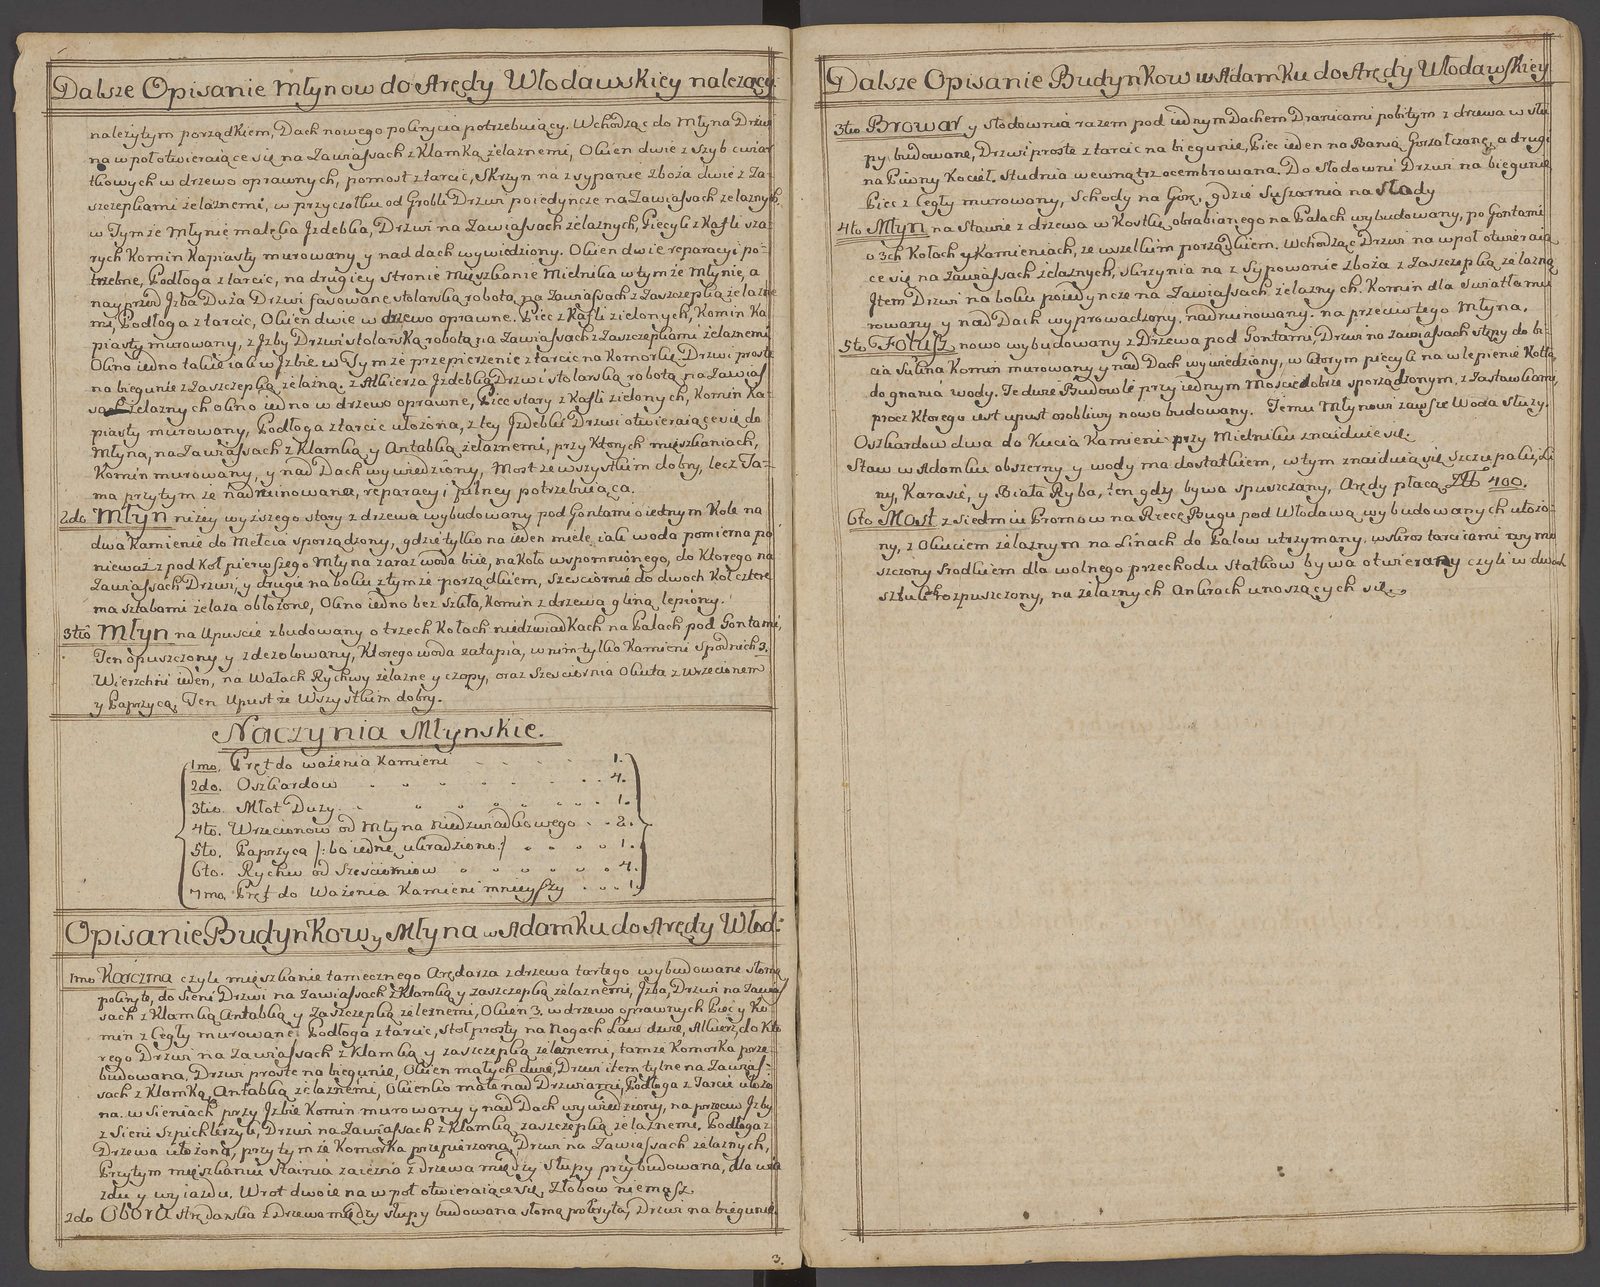 Dalsze Opisanie Młynow do Arędy Włodawskiey należący.
należytym porządkiem, Dach nowego pokrycia potrzebuiący. Wchodząc do Młyna Drzwi
na w poł otwieraiące się na Zawiassach z Klamką żelaznemi, Okien dwie z szyb cwiar
tkowych w drzewo oprawnych, pomost z tarcic, Skrzyn na zsypanie Zboża dwie z Za-
szczepkami żelaznemi, w przyczołku od Grobli Drzwi poiedyncze na Zawiassach żelaznych,
w Tymże Młynie maleka Izdebka, Drzwi na Zawiassach żelaznych, Piecyk z Kafli sza-
rych Komin Kapiasty murowany y nad dach wywiedziony. Okien dwie reparacyi po-
trzebne, Podłoga z tarcic, na drugiey stronie Mięszkanie Mielnika w tymże Młynie, a
nayprzod Izba Duża Drzwi fasowane stolarską robotą na Zawiassach z Zaszczepką żelazne
mi, Podłoga z tarcic, Okien dwie w drzewo oprawne. Piec z Kafli zielonych, Komin Ka
piasty murowany, z Izby Drzwi stolarską robotą na Zawiassach z Zaszczepkami żelaznemi
Okno iedno takie iak w Izbie w Tymże przepierzenie z tarcic na Komorkę Drzwi proste
na biegunie z Zaszczepką żelazną. z Alkierza Izdebka Drzwi stolarską robotą na Zawias
sach żelaznych okno iedno w drzewo oprawne, Piec stary z Kafli zielonych, Komin Ka
piasty murowany, Podłoga z tarcic ułożona, z tey Izdebki Drzwi otwieraiące się do
Młyna, na Zawiassach z Klamką y Antabką żelaznemi, przy ktorych mięszkaniach,
Komin murowany, y nad Dach wywiedziony, Most ze wszystkim dobry, lecz Ta-
ma przytym że nadruinowana, reparacyi pilney potrzebuiąca.
2do Młyn niżey wyższego stary z drzewa wybudowany pod Gontami o iednym Kole na
dwa Kamienie do Mełcia sporządzony, gdzie tylko na ieden miele, iak woda pomierna po
nieważ z pod Koł pierwszego Młyna zaraz woda biie, na Koło wspomnione, do Ktorego na
Zawiassach Drzwi, y drugie na boku z tymże porządkiem, Szesciornie do dwoch Koł cztere
ma sztabami żelaza obłożone, Okno iedno bez szkła, Komin z drzewa gliną lepiony.
3tio Młyn na Upuscie zbudowany o trzech Kołach niedzwiadkach na Palach pod Gontami,
Ten opuszczony y zdezolowany, Ktorego woda zatapia, w nim tylko Kamieni spodnich 3.
Wierzchni ieden, na Wałach Rychwy żelazne y czopy, oraz Szesciornia Okuta z wrzecionem
y Paprzycą, Ten Upust ze Wszystkim dobry.
Naczynia Młynskie.
1mo. Pręt do ważenia Kamieni 1.
2do. Oszkardow 4.
3tio. Młot Duży 1.
4to. Wrzecionow od Młyna niedzwiadkowego 2.
5to. Paprzyca /:bo iednę ukradziono:/ 1.
6to. Rychw od Szesciorniow 4.
7mo. Pręt do Ważenia Kamieni mnieyszy 1.
Opisanie Budynkow y Młyna w Adamku do Arędy Włod:
1mo Karczma czyli mięszkanie tamecznego Arędarza z drzewa tartego wybudowane słomą
pokryte, do Sieni Drzwi na Zawiassach z Klamką y zaszczepką żelaznemi, Izba, Drzwi na Zawias
sach z Klamką Antabką y Zaszczepką żelaznemi, Okien 3. w drzewo oprawnych Piec y Ko-
min z Cegły murowane. Podłoga z tarcic, stoł prosty na Nogach Ław dwie, Alkierz, do Kto
rego Drzwi na Zawiassach z Klamką y zaszczepką żelaznemi, tamże Komorka prze-
budowana, Drzwi proste na biegunie, Okien małych dwie, Drzwi item tylne na Zawias-
sach z Klamką, Antabką żelaznemi, Okienko małe nad Drzwiami, Podłoga z Tarcic ułożo
na. w Sieniach przy Izbie Komin murowany y nad Dach wywiedziony, na przeciw Izby
z Sieni Szpichlerzyk, Drzwi na Zawiassach z Klamką zaszczepką żelaznemi. Podłoga z
Drzewa ułożona, przy tymże Komorka przepierzona, Drzwi na Zawiassach żelaznych,
Przytym mięszkaniu Stainia zaiezna z drzewa między Słupy przybudowana, dla wia
zdu y wyiazdu. Wrot dwoie na w poł otwieraiące się, Złobow niemasz.
2do Obora Arędarska z Drzewa między słupy budowana słomą pokryta, Drzwi na biegunie.
3.
Dalsze Opisanie Budynkow w Adamku do Arędy Włodawskiey
3tio Browar y słodownia razem pod iednym Dachem Dranicami pobitym z drzewa w słu
py budowane, Drzwi proste z tarcic na biegunie, Piec ieden na Banią Gorzałczaną, a drugi
na Piwny Kocieł. Studnia wewnątrz ocembrowana. Do słodowni Drzwi na biegunie
Piec z Cegły murowany, Schody na Gorę, gdzie Suszarnia na Słody
4to Młyn na Stawie z drzewa w Kostkę obrabianego na Palach wybudowany, po Gontami
o 3ch Kołach y Kamieniach, ze wszelkim porządkiem. Wchodząc Drzwi na w poł otwieraią
ce się na Zawiassach żelaznych, skrzynia na zSypowanie Zboża z Zaszczepką żelazną
Item Drzwi na boku poiedyncze na Zawiassach żelaznych. Komin dla Swiatła mu
rowany y nad Dach wyprowadzony, nadruinowany. na przeciw tego Młyna.
5to Folusz nowo wybudowany z Drzewa pod Gontami, Drzwi na Zawiassach stępy do bi-
cia Sukna Komin murowany y nad Dach wywiedziony, w ktorym piecyk na wlepienie Kotła
do gnania wody. Te dwie Budowle przy iednym Moscie dobrze sporządzonym, z Zastawkami,
procz Ktorego iest upust osobliwy nowo budowany. Temu Młynowi zawsze Woda służy.
Oszkardow dwa do Kucia Kamieni przy Mielniku znaiduie się.
Staw w Adamku obszerny y wody ma dostatkiem, w tym znaiduią się szczupaki, Li
ny, Karasie, y Biała Ryba, ten gdy bywa spuszczany, Arędy płacą 400.
6to Most z Siedmiu Promow na Rzece Bugu pod Włodawą wybudowanych ułożo-
ny, z Okuciem żelaznym na Linach do Palow utrzymany. wskroś tarciami wymo
szczony srodkiem dla wolnego przechodu statkow bywa otwierany czyli w dwoch
sztukach rozpuszczony, na żelaznych Ankrach unoszących się.